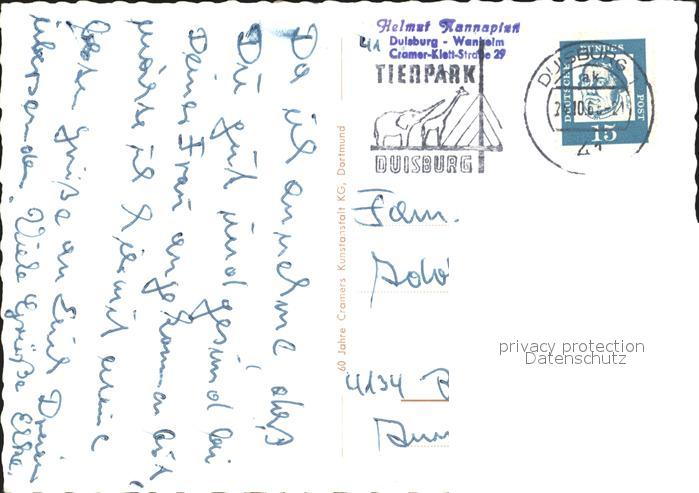 Da ich annehme daß
Du gut und gesund bei
Deiner Frau angekommen bist,
möchte ich hiermit meine
lieben Grüße an Euch Dreien
übersenden. Viele Grüße Elke.
60 Jahre Cramers Kunstanstalt KG, Dortmund
Helmut Kannapinn
Duisburg - Wanheim
Cramer-Klett-Straße 29
TIERPARK
DUISBURG
DUISBURG
41
DEUTSCHE BUNDESPOST
15
Fam.
4134
privacy protection
Datenschutz